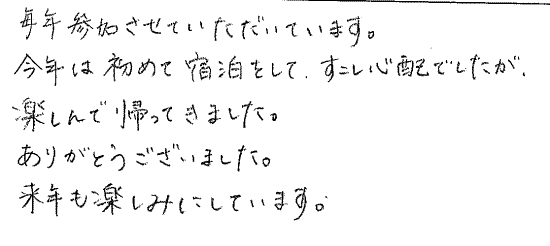 毎年参加させていただいています。
今年は初めて宿泊をして、すこし心配でしたが、
楽しんで帰ってきました。
ありがとうございました。
来年も楽しみにしています。